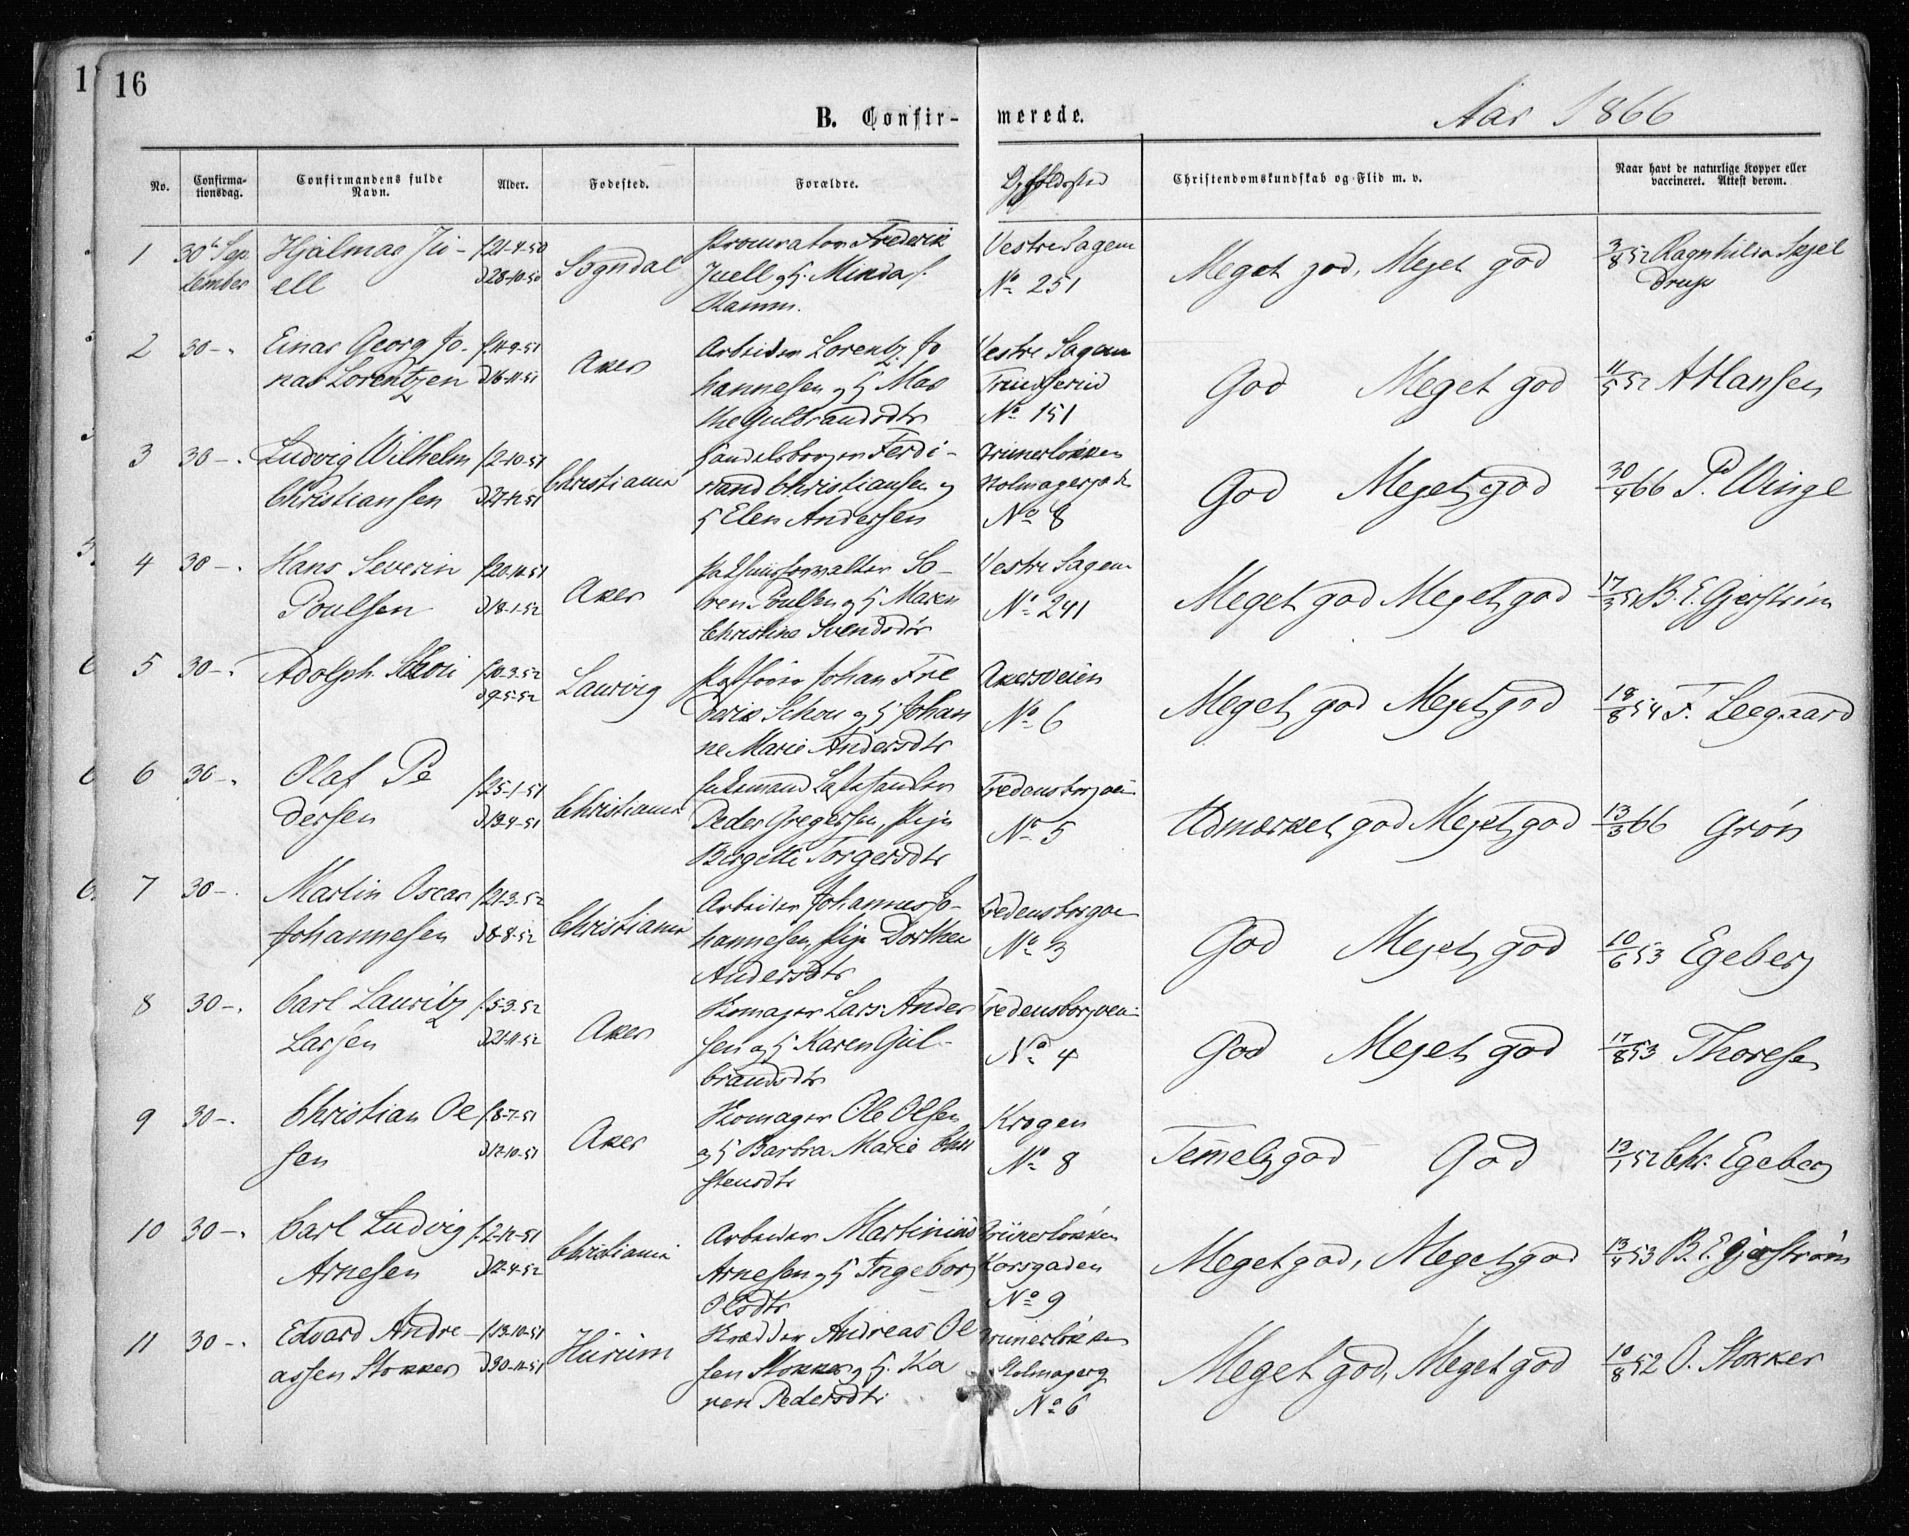 16
B. Confir-merede.
Aar 1866
No.
Confirma-tionsdag.
Confirmandens fulde Navn.
Alder.
Fødested.
Forældre.
Opholdssted
Christendomskundskab og Flid m. v.
Naar havt de naturlige Kopper eller vaccineret. Attest derom.
1 30te Sep Hjalmar Ju- f. 21-4-50 Sogndal Procurator Frederik Vestre Sagene Meget god, Meget god 3/8 52 Ragnhilda Sejel
tember ell d 28-10-50 Juell og H. Minda f. No 251 drup
Ramm.
2 30-. Einar Georg Jo- f. 11-9-51 Aker Arbeider Lorentz Jo Vestre Sagene God Meget god 11/5 52 A Hansen
nas Lorentzen d 16-11-51 hannesen og H Mar
the Gulbrandsdtr No 151
3 30-. Ludvig Wilhelm f 2-10-51 Christiania Handelsborger Ferdi- Grünerløkken God Meget god 30/4 66 P. Winge
Christiansen d 27-12-51 nand Christiansen og Holmagergade
H Elen Andersen No 8
4 30-. Hans Severin f 20-10-51 Aker Sø- Vestre Sagene Meget god Meget god 17/3 52 B. E. Gjerstrøm
Poulsen d 18-1-52 ren Poulsen og H Maren No 241
Christine Svendsdtr
5 30-. Adolph Schou f. 10-3-52 Laurvig Johan Fre Akersveien Meget god Meget god 18/8 54 F. Leegaard
d 9-5-52 derik Schou og H Johan No 6
ne Marie Andersdtr
6 30-. Olaf Pe f. 25-1-51 Christiania Fredensborgvei Udmærket god Meget god 13/3 66 Grøn
dersen d 13-4-51 Peder Gregersen, Pige No 5
Birgitte Torgersdtr
7 30-. Martin Oscar f. 21-3-52 Christiania Arbeider Johannes Jo- Fredensborgvei God Meget god 10/6 53 Egeberg
Johannesen d 8-8-52 hannesen, Pige Dorthea No 3
Andersdtr
8 30-. Carl Lauritz f. 5-3-52 Aker Skomager Lars Ander Fredensborgvei God Meget god 17/8 53 Thoresen
Larsen d 21-11-52 sen og H Karen Gul- No 4
brandsdtr
9 30-. Christian Ol f. 8-7-51 Aker Skomager Ole Olsen Krogen Temelig god God 13/1 52 Chr. Egeberg
sen d 12-10-51 og H Barbra Marie No 8
stensdtr
10 30-. Carl Ludvig f. 2-12-51 Christiania Arbeider Martinius Grünerløkken Meget god, Meget god 13/4 53 B. E. Gjerstrøm
Arnesen d 12-4-52 Arnesen og H Ingeborg Korsgaden
Olsdtr No 9
11 30-. Edvard Andre- f. 13-10-51 Hurum Skrædder Andreas Ol Grünerløkken Meget god, Meget god 10/8 52 O. Stokker
assen Stokker d 30-11-51 sen Stokker og H. Ka Holmagerg
ren Pedersdtr No 6